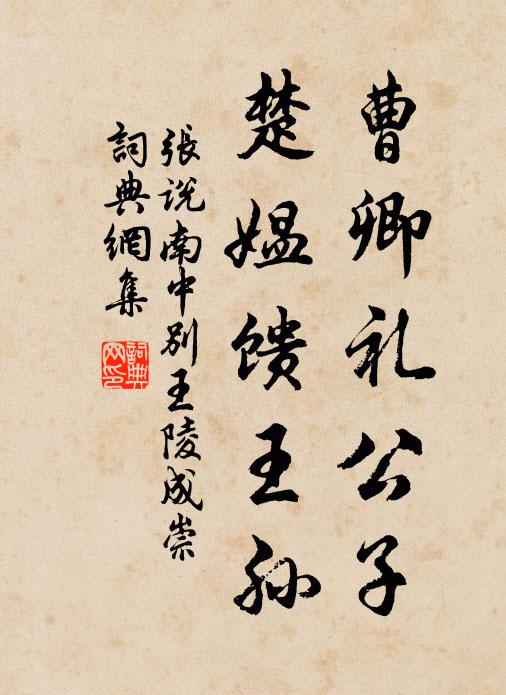 曹卿礼公子
楚媪馈王孙
張说南中别王陵成崇
詞典網集
詞典
网印